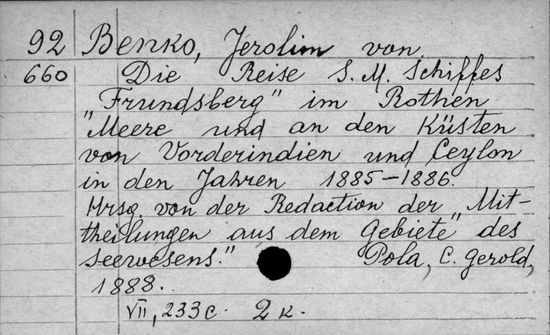 92 Benko, Jerolim von
660 Die Reise S. M. Schiffes
"Frundsberg" im Rothen
"Meere und an den Küsten
von Vorderindien und Ceylon
in den Jahren 1885-1886.
Hrsg. von der Redaction der "Mit-
theilungen aus dem Gebiete" des
Seewesens." Pola, C. Gerold,
1888.
VII, 233 c. 2 к.